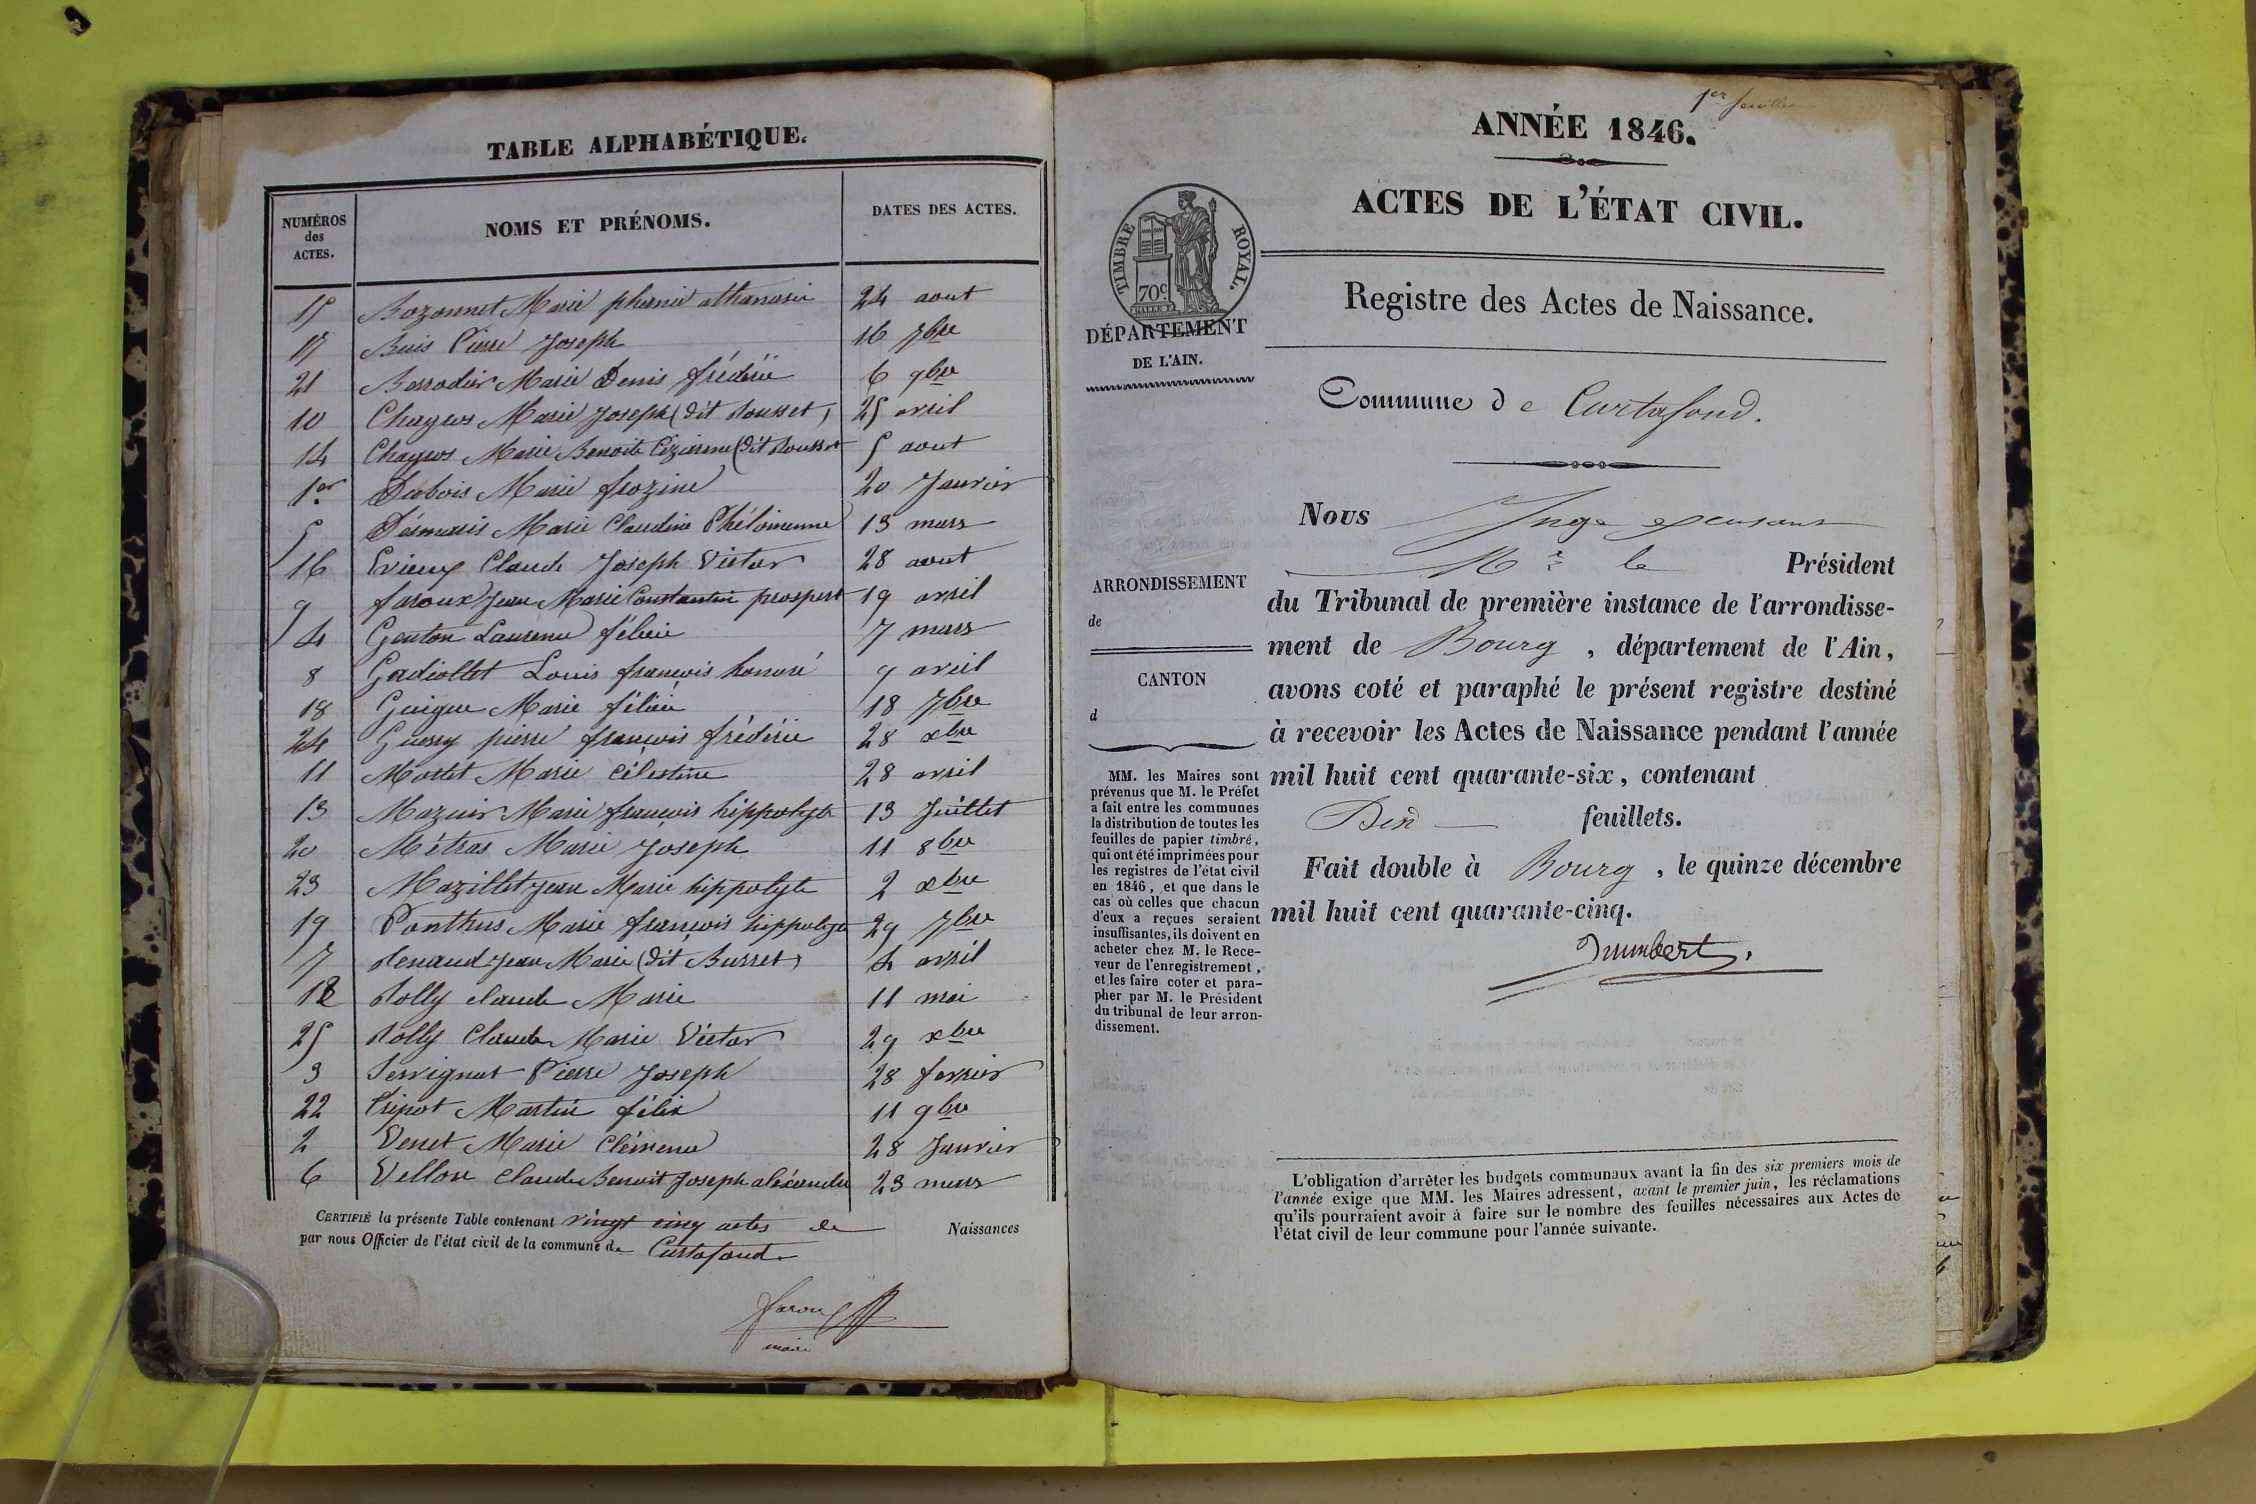 TABLE ALPHABÉTIQUE.
NUMÉROS
des
ACTES.
NOMS ET PRÉNOMS.
DATES DES ACTES.
15 Bozonnet Marie phanie athanasie 24 aout
17 Buis Pierre Joseph 16 7bre
21 Berrodier Marie Denis frédéric 6 9bre
10 Chagros Marie Joseph (dit Rousset) 25 avril
14 Chagros Marie Benoite (dit Rousset 5 aout
1er Dubois Marie frozine 20 Janvier
5 Désmaris Marie Claudine Philoimenne 13 mars
16 Evieux Claude Joseph Victor 28 aout
9 faroux Jean Marie Constantin prospert 19 avril
4 Genton Laurence félicie 7 mars
8 Gadiollet Louis françois honoré 9 avril
18 Guigue Marie félicie 18 7bre
24 Guerry pierre françois frédéric 28 xbre
11 Mortet Marie Célestine 28 avril
13 Mazuir Marie françois hippolyte 13 Juillet
20 Métras Marie Joseph 11 8bre
23 Mazillet jean Marie hippolyte 2 xbre
19 Ponthus Marie françois hippolyte 29 7bre
7 Renaud Jean Marie (dit Busset) 4 avril
12 Rolly claude Marie 11 mai
25 Rolly Claude Marie Victor 29 xbre
3 Servignat Pierre Joseph 28 fevrier
22 Tripot Martin félix 11 9bre
2 Verret Marie Clémence 28 Janvier
6 Vellon Claude Benoit Joseph aléxandre 23 mars
CERTIFIÉ la présente Table contenant vingt cinq actes de Naissances
par nous Officier de l'état civil de la commune de Curtafond.
faroux
maire
1er feuillet
ANNÉE 1846.
ACTES DE L'ÉTAT CIVIL.
TIMBRE ROYAL.
70c.
DÉPARTEMENT
DE L'AIN.
Registre des Actes de Naissance.
Commune de Curtafond.
Nous Juge
Mr le Président
du Tribunal de première instance de l'arrondisse-
ment de Bourg, département de l'Ain,
avons coté et paraphé le présent registre destiné
à recevoir les Actes de Naissance pendant l'année
mil huit cent quarante-six, contenant
feuillets.
Fait double à Bourg, le quinze décembre
mil huit cent quarante-cinq.
ARRONDISSEMENT
de
CANTON
d
MM. les Maires sont
prévenus que M. le Préfet
a fait entre les communes
la distribution de toutes les
feuilles de papier timbré,
qui ont été imprimées pour
les registres de l'état civil
en 1846, et que dans le
cas où celles que chacun
d'eux a reçues seraient
insuffisantes, ils doivent en
acheter chez M. le Rece-
veur de l'enregistrement,
et les faire coter et para-
pher par M. le Président
du tribunal de leur arron-
dissement.
L'obligation d'arrêter les budgets communaux avant la fin des six premiers mois de
l'année exige que MM. les Maires adressent, avant le premier juin, les réclamations
qu'ils pourraient avoir à faire sur le nombre des feuilles nécessaires aux Actes de
l'état civil de leur commune pour l'année suivante.